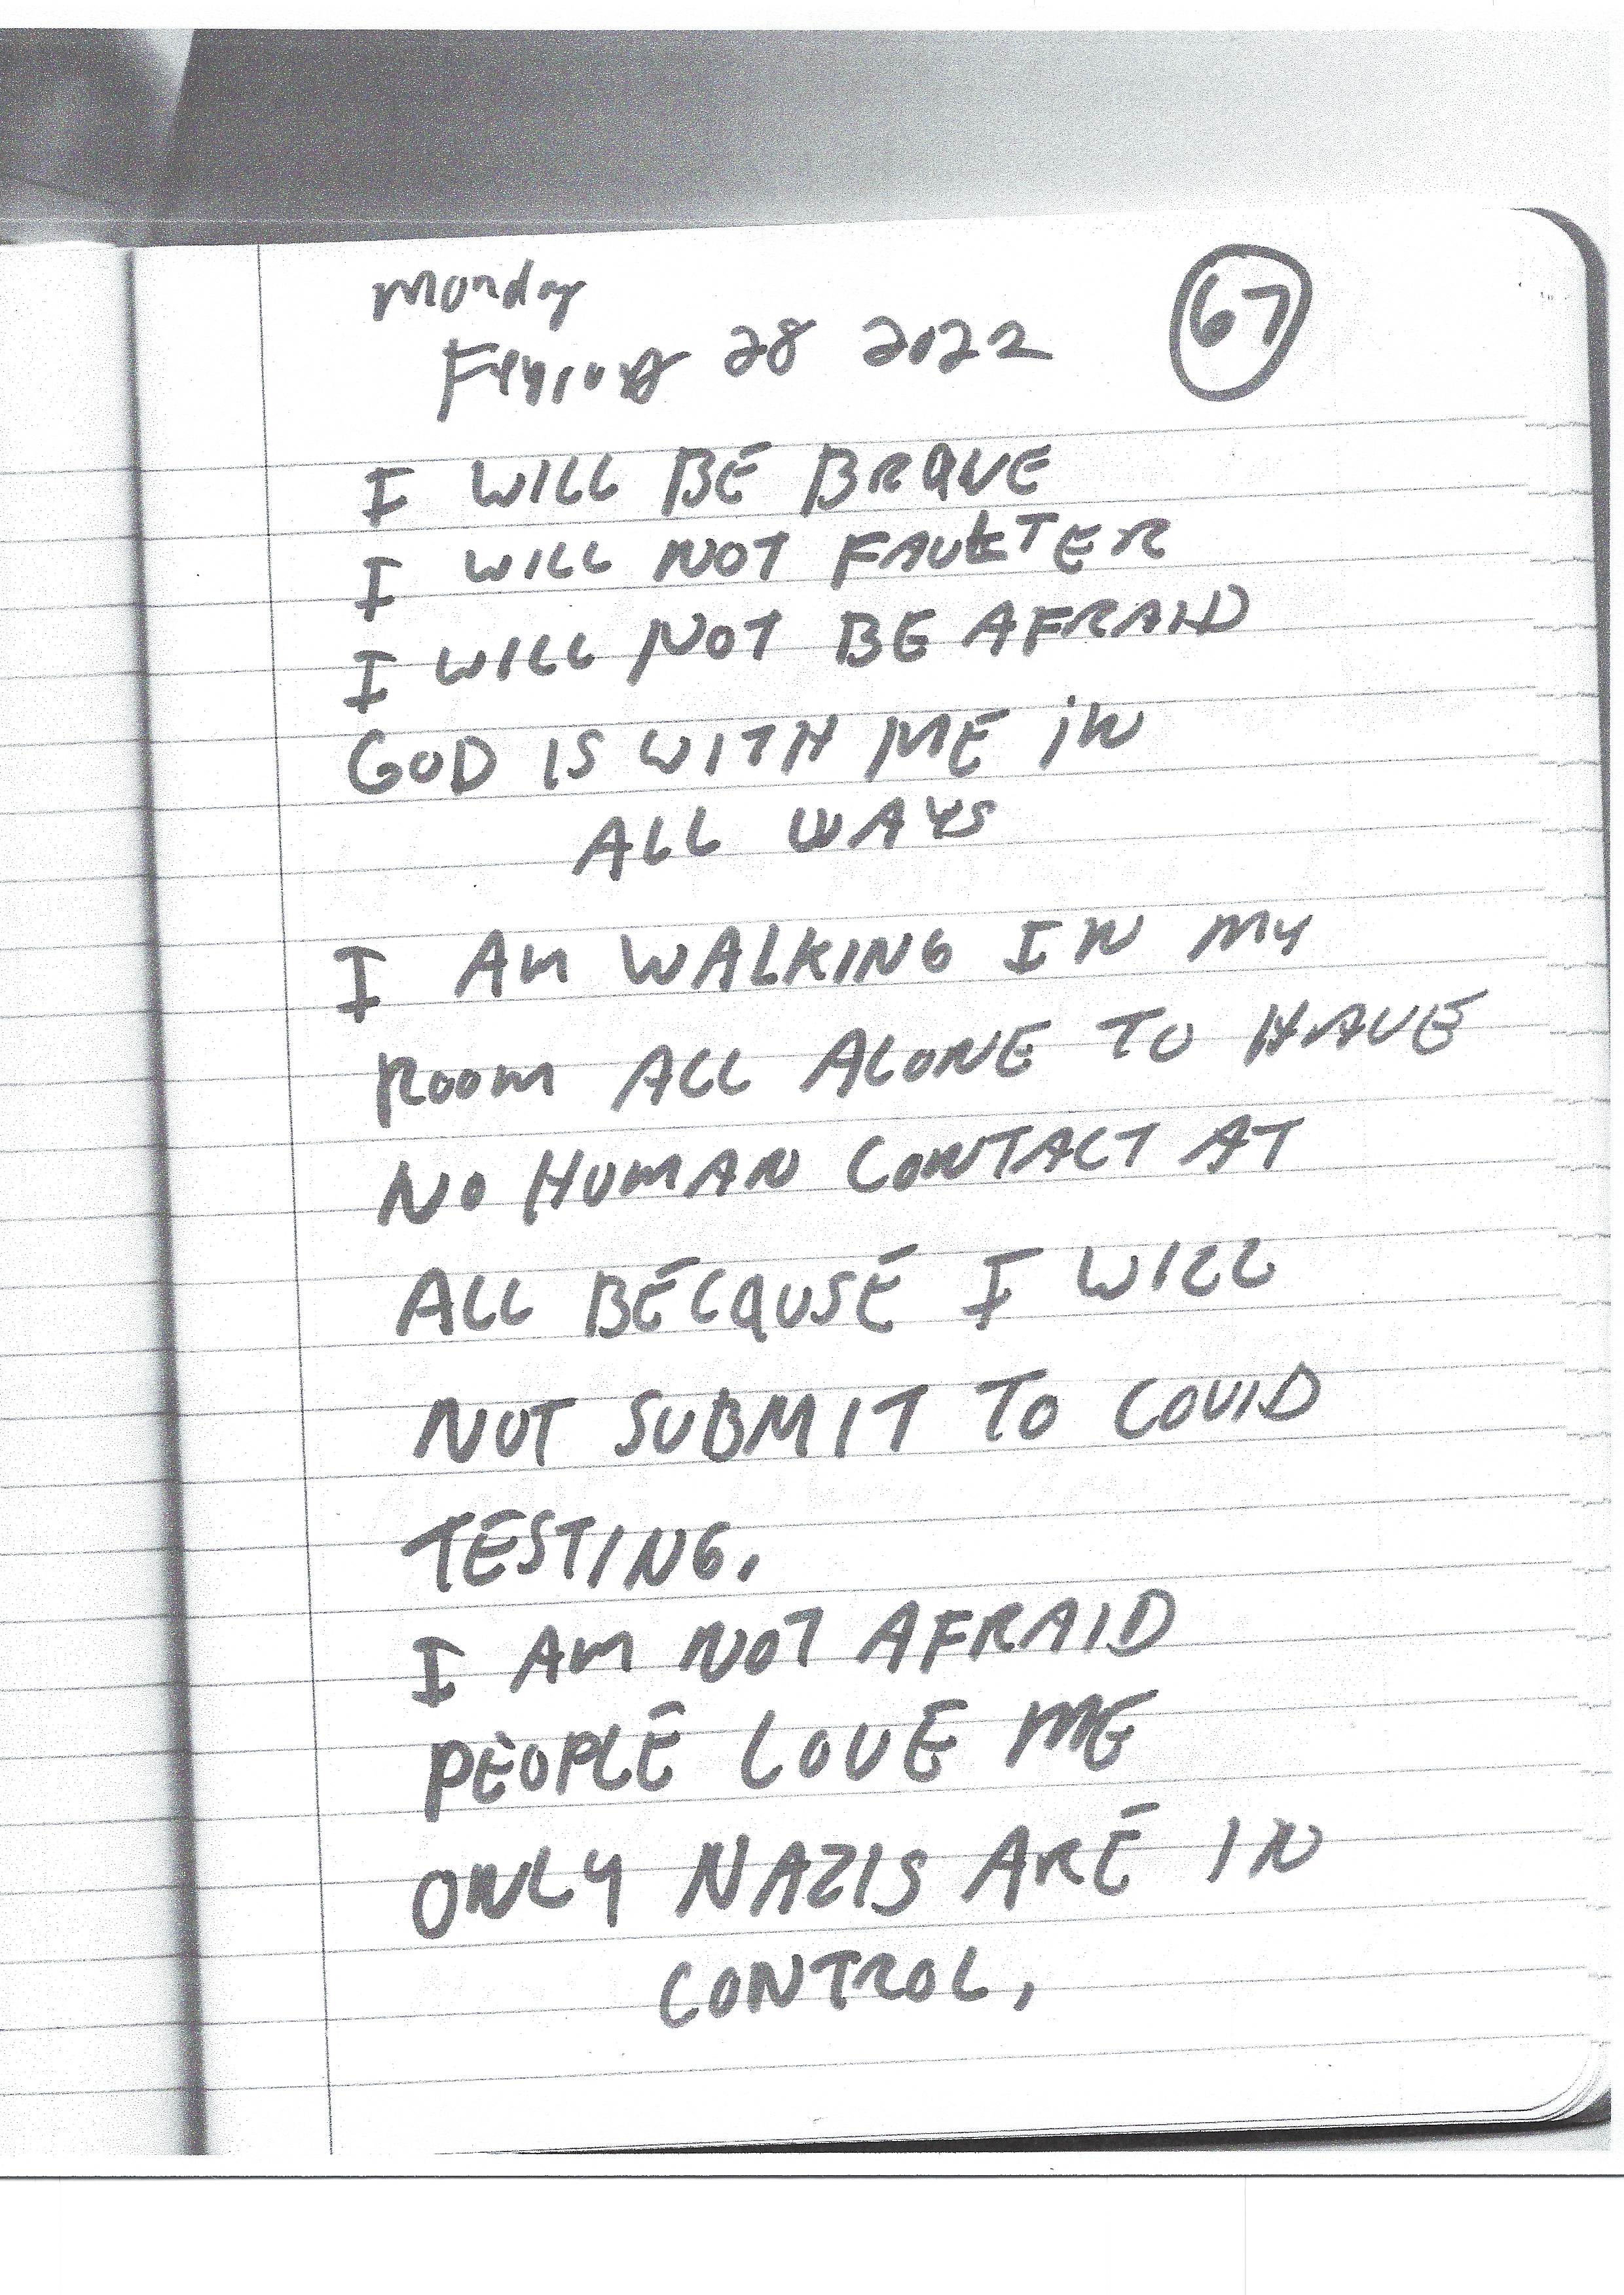 Monday
67
28 2022
I WILL BE BRAVE
I WILL NOT FAULTER
I WILL NOT BE AFRAID
GOD IS WITH ME IN
ALL WAYS
I AM WALKING IN MY
ROOM ALL ALONE TO HAVE
NO HUMAN CONTACT AT
ALL BECAUSE I WILL
NOT SUBMIT TO COVID
TESTING.
I AM NOT AFRAID
PEOPLE LOVE ME
ONLY NAZIS ARE IN
CONTROL,